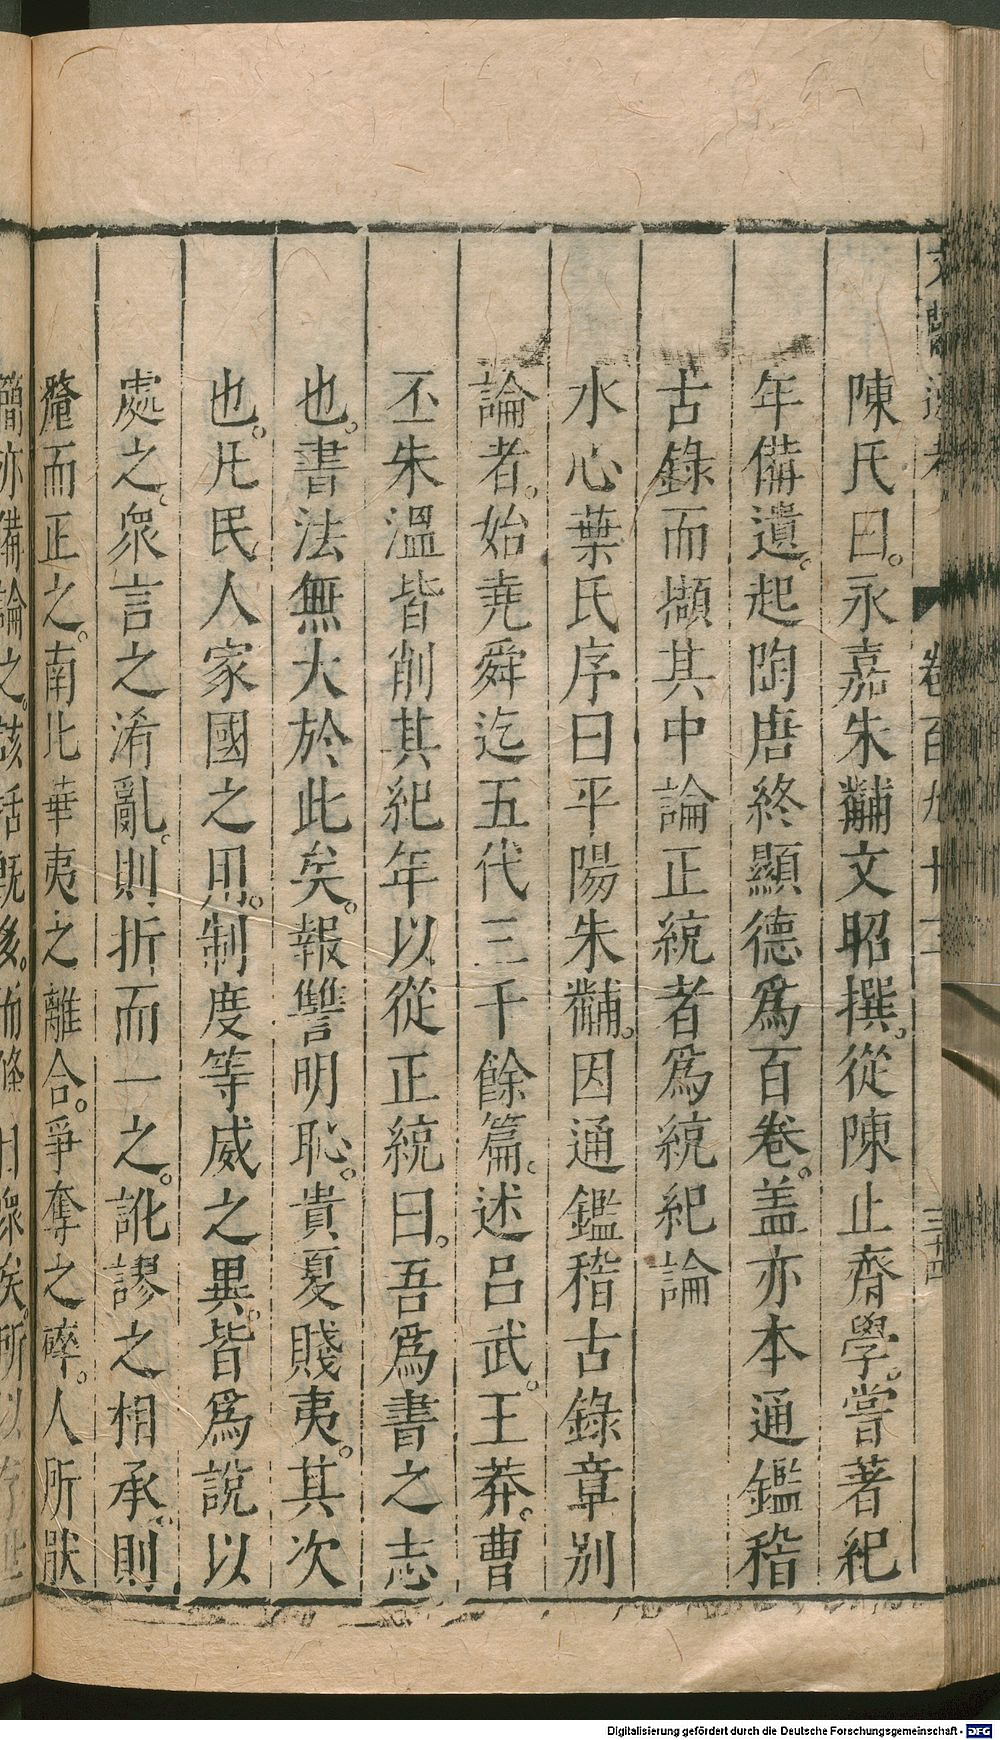 陳氏曰。永嘉朱黼文昭撰。從陳止齊學。嘗著紀
年備遺。起陶唐終顯德爲百卷。盖亦本通鑑稽
古錄而擷其中論正統者爲統紀論
水心葉氏序曰平陽朱黼。因通鑑稽古錄章别
論者。始堯舜迄五代三千餘篇。述呂武。王莽。曹
丕朱溫皆削其紀年以從正統曰。吾爲書之志
也。書法無大於此矣。報讐明恥。貴夏賤夷。其次
也。凡民人家國之用。制度等威之異。皆爲說以
處之。衆言之淆亂。則折而一之。訛謬之相承。則
釐而正之。南北華夷之離合。爭奪之碎。人所狀
簡亦備論之。該括旣多。而條目衆矣。所以
卷百九十三
三十四
Digitalisierung gefördert durch die Deutsche Forschungsgemeinschaft - DFG